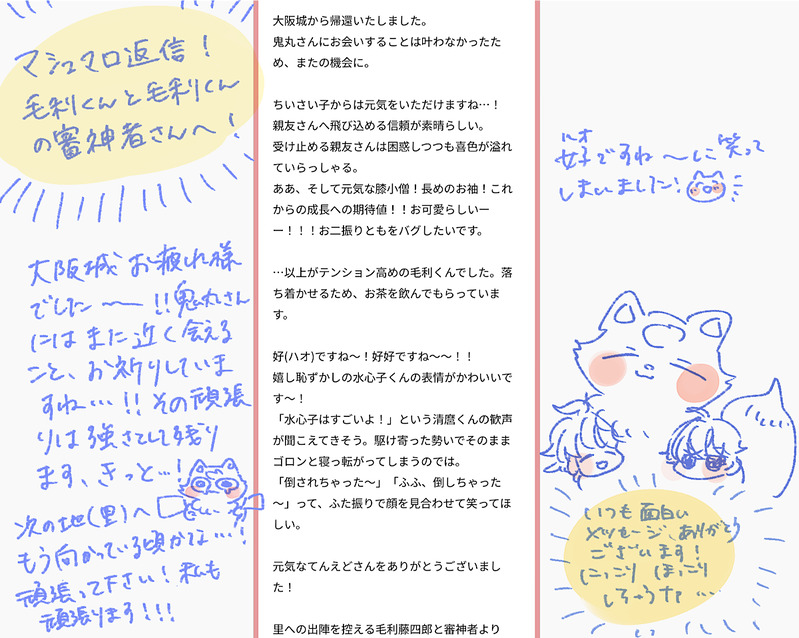 マシュマロ返信!
毛利くんと毛利くん
の審神者さんへ!
大阪城お疲れ様
でした〜〜!!鬼丸さん
にはまた近く会える
こと、お祈りしていま
すね…!!その頑張
りは強さとして残り
ます、きっと…!
次の地(里)へ
もう向かっている頃かな…!
頑張って下さい!私も
頑張ります!!!
大阪城から帰還いたしました。
鬼丸さんにお会いすることは叶わなかったた
め、またの機会に。
ちいさい子からは元気をいただけますね…!
親友さんへ飛び込める信頼が素晴らしい。
受け止める親友さんは困惑しつつも喜色が溢れ
ていらっしゃる。
ああ、そして元気な膝小僧!長めのお袖!これ
からの成長への期待値!!お可愛らしいー
ー!!!お二振りともをバグしたいです。
…以上がテンション高めの毛利くんでした。落
ち着かせるため、お茶を飲んでもらっていま
す。
好(ハオ)ですね〜!好好ですね〜〜!!
嬉し恥ずかしの水心子くんの表情がかわいいで
す〜!
「水心子はすごいよ!」という清麿くんの歓声
が聞こえてきそう。駆け寄った勢いでそのまま
ゴロンと寝っ転がってしまうのでは。
「倒されちゃった〜」「ふふ、倒しちゃった
〜」って、ふた振りで顔を見合わせて笑ってほ
しい。
元気なてんえどさんをありがとうございまし
た!
里への出陣を控える毛利藤四郎と審神者より
ハオ
好ですね〜に笑って
しまいました!
いつも面白い
メッセージ、ありがとう
ございます!
にっこり ほっこり
しちゃうナ…